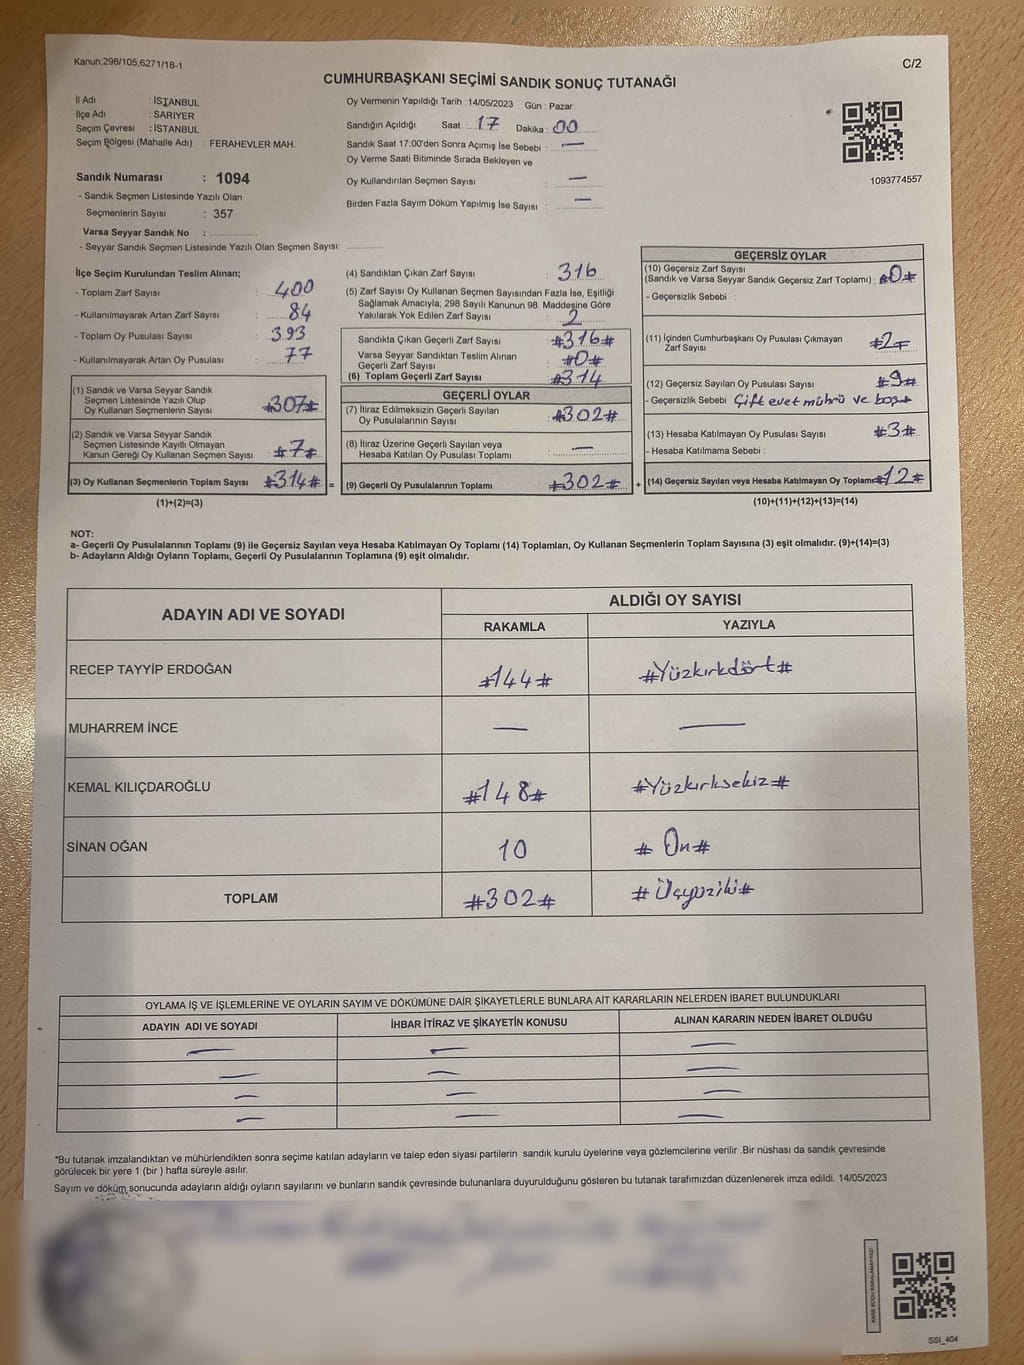 Kanun,298/105,6271/18-1
C/2
CUMHURBAŞKANI SEÇİMİ SANDIK SONUÇ TUTANAĞI
İl Adı : İSTANBUL
İlçe Adı : SARIYER
Seçim Çevresi : İSTANBUL
Seçim Bölgesi (Mahalle Adı) : FERAHEVLER MAH.
Sandık Numarası : 1094
- Sandık Seçmen Listesinde Yazılı Olan
Seçmenlerin Sayısı : 357
Varsa Seyyar Sandık No :
- Seyyar Sandık Seçmen Listesinde Yazılı Olan Seçmen Sayısı:
Oy Vermenin Yapıldığı Tarih : 14/05/2023 Gün : Pazar
Sandığın Açıldığı Saat : 17 Dakika : 00
Sandık Saat 17:00'den Sonra Açımış İse Sebebi : —
Oy Verme Saati Bitiminde Sırada Bekleyen ve
Oy Kullandırılan Seçmen Sayısı : —
Birden Fazla Sayım Döküm Yapılmış İse Sayısı : —
1093774557
İlçe Seçim Kurulundan Teslim Alınan;
- Toplam Zarf Sayısı : 400
- Kullanılmayarak Artan Zarf Sayısı : 84
- Toplam Oy Pusulası Sayısı : 393
- Kullanılmayarak Artan Oy Pusulası : 77
(1) Sandık ve Varsa Seyyar Sandık
Seçmen Listesinde Yazılı Olup
Oy Kullanan Seçmenlerin Sayısı #307#
(2) Sandık ve Varsa Seyyar Sandık
Seçmen Listesinde Kayıtlı Olmayan
Kanun Gereği Oy Kullanan Seçmen Sayısı : #7#
(3) Oy Kullanan Seçmenlerin Toplam Sayısı #314# =
(1)+(2)=(3)
(4) Sandıktan Çıkan Zarf Sayısı : 316
(5) Zarf Sayısı Oy Kullanan Seçmen Sayısından Fazla İse, Eşitliği
Sağlamak Amacıyla, 298 Sayılı Kanunun 98. Maddesine Göre
Yakılarak Yok Edilen Zarf Sayısı : 2
Sandıkta Çıkan Geçerli Zarf Sayısı : #316#
Varsa Seyyar Sandıktan Teslim Alınan
Geçerli Zarf Sayısı : #0#
(6) Toplam Geçerli Zarf Sayısı #314
GEÇERLİ OYLAR
(7) İtiraz Edilmeksizin Geçerli Sayılan
Oy Pusulalarının Sayısı : #302#
(8) İtiraz Üzerine Geçerli Sayılan veya
Hesaba Katılan Oy Pusulası Toplamı : —
(9) Geçerli Oy Pusulalarının Toplamı #302# +
GEÇERSİZ OYLAR
(10) Geçersiz Zarf Sayısı
(Sandık ve Varsa Seyyar Sandık Geçersiz Zarf Toplamı) : #0#
- Geçersizlik Sebebi :
(11) İçinden Cumhurbaşkanı Oy Pusulası Çıkmayan
Zarf Sayısı #2#
(12) Geçersiz Sayılan Oy Pusulası Sayısı #9#
- Geçersizlik Sebebi Çift evet mührü ve boş#
(13) Hesaba Katılmayan Oy Pusulası Sayısı #3#
- Hesaba Katılmama Sebebi :
(14) Geçersiz Sayılan veya Hesaba Katılmayan Oy Toplamı #12#
(10)+(11)+(12)+(13)=(14)
NOT:
a- Geçerli Oy Pusulalarının Toplamı (9) ile Geçersiz Sayılan veya Hesaba Katılmayan Oy Toplamı (14) Toplamları, Oy Kullanan Seçmenlerin Toplam Sayısına (3) eşit olmalıdır. (9)+(14)=(3)
b- Adayların Aldığı Oyların Toplamı, Geçerli Oy Pusulalarının Toplamına (9) eşit olmalıdır.
ADAYIN ADI VE SOYADI
ALDIĞI OY SAYISI
RAKAMLA YAZIYLA
RECEP TAYYİP ERDOĞAN #144# #Yüzkırkdört#
MUHARREM İNCE — —
KEMAL KILIÇDAROĞLU #148# #Yüzkırksekiz#
SİNAN OĞAN 10 # On#
TOPLAM #302# # Üçyüziki#
OYLAMA İŞ VE İŞLEMLERİNE VE OYLARIN SAYIM VE DÖKÜMÜNE DAİR ŞİKAYETLERLE BUNLARA AİT KARARLARIN NELERDEN İBARET BULUNDUKLARI
ADAYIN ADI VE SOYADI İHBAR İTİRAZ VE ŞİKAYETİN KONUSU ALINAN KARARIN NEDEN İBARET OLDUĞU
— — —
— — —
— — —
— — —
*Bu tutanak imzalandıktan ve mühürlendikten sonra seçime katılan adayların ve talep eden siyasi partilerin sandık kurulu üyelerine veya gözlemcilerine verilir .Bir nüshası da sandık çevresinde
görülecek bir yere 1 (bir ) hafta süreyle asılır.
Sayım ve döküm sonucunda adayların aldığı oyların sayılarını ve bunların sandık çevresinde bulunanlara duyurulduğunu gösteren bu tutanak tarafımızdan düzenlenerek imza edildi. 14/05/2023
KARE KODU KARALAMAYINIZ!
SSI_404